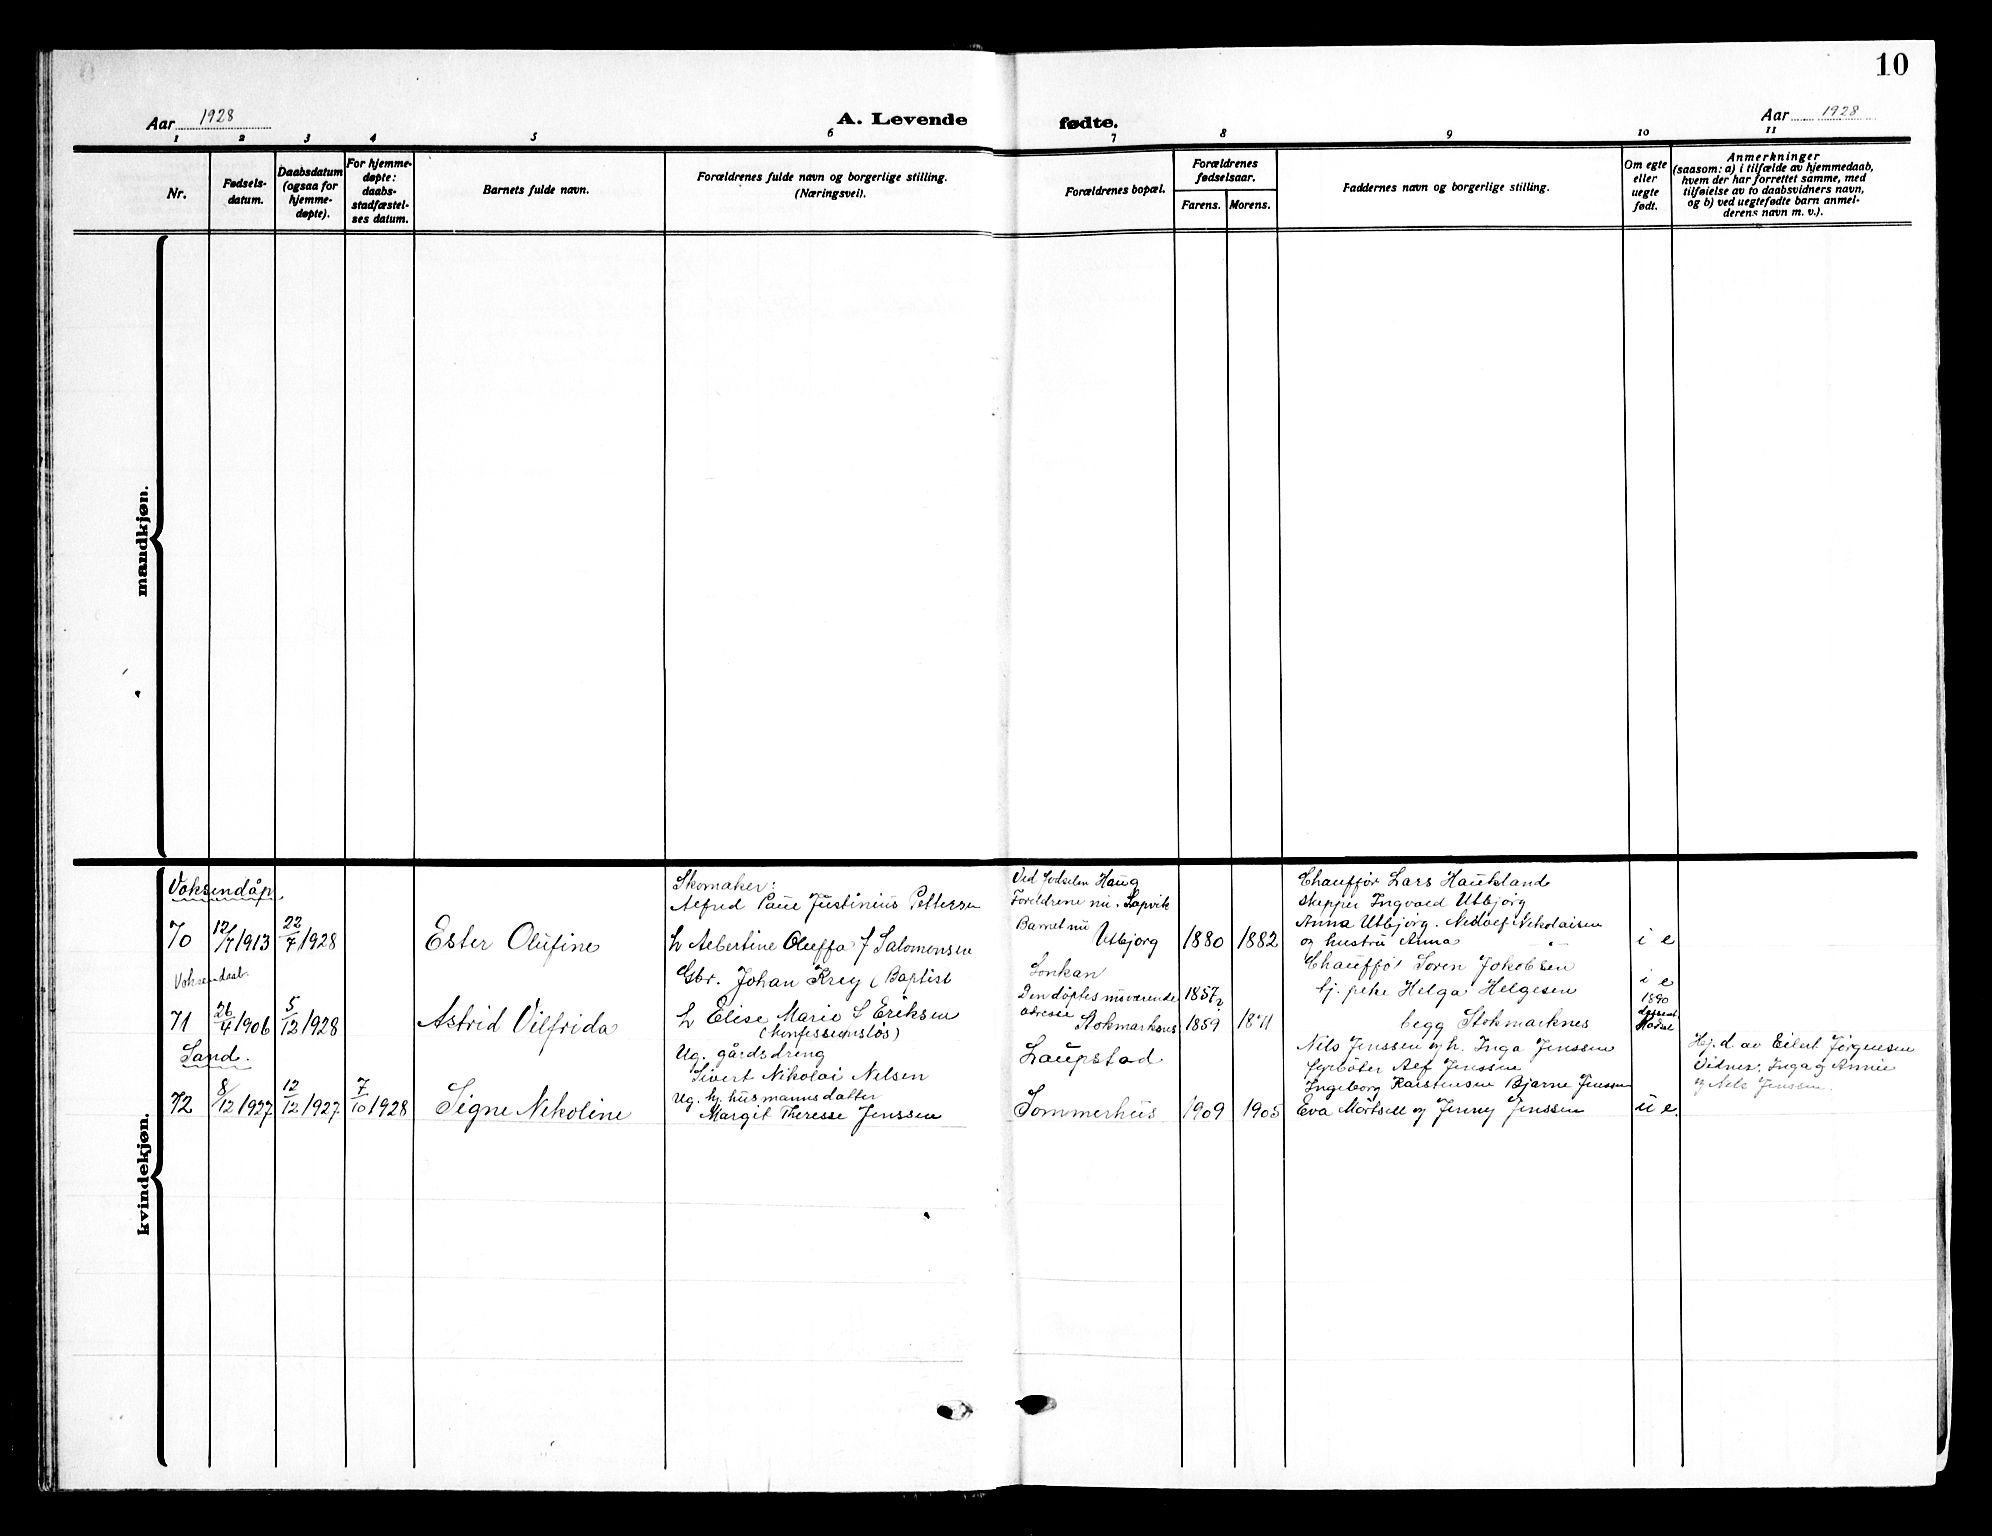 10
Aar 1928
A. Levende
fødte.
Aar 1928
1 2 3 4 5 6 7 8 9 10 11
Nr.
Fødsels-
datum.
Daabsdatum
(ogsaa for
hjemme-
døpte).
For hjemme-
døpte:
daabs-
stadfæstel-
ses datum.
Barnets fulde navn.
Forældrenes fulde navn og borgerlige stilling.
(Næringsvei).
Forældrenes bopæl.
Forældrenes
fødselsaar.
Farens. Morens.
Faddernes navn og borgerlige stilling.
Om egte
eller
uegte
født.
Anmerkninger
(saasom: a) i tilfælde av hjemmedaab,
hvem der har forrettet samme, med
tilføielse av to daabsvidners navn,
og b) ved uegtefødte barn anmel-
derens navn m. v.).
mandkjøn.
kvindekjøn.
Voksendåp
70
12/7 1913
22/7 1928
Ester Olufine
Skomaker:
Alfred Paul Justinius Pettersen
h Albertine Oluffa f Salomonsen
Ved fødselen Haug
Foreldrene nu. Sapvik
Barnet nu
Utbjorg
1880
1882
Chauffør Lars Haukland
skipper Ingvald Utbjørg
Anna Utbjörg. Nedolf Nikolaisen
og hustru Anna "
i e
Voksendaab.
71
26/4 1906
5/12 1928
Astrid Vilfrida
Gbr. Johan Krey (Baptist
h Elise Marie f Eriksen
(Konfessionsløs)
Sonkan
Den døptes nuværende
adresse
Stokmarknes
1857?
1859
1871
Chauffør Soren Jakobsen
hj. pike Helga Helgesen
begg Stokmarknes
i e
1890
Hadsel
Sand.
72
8/12 1927
12/12 1927
7/10 1928
Signe Nikoline
Ug. gårdsdreng
Sivert Nikolai Nelsen
Ug. hj. husmannsdatter
Margit Therese Jenssen
Laupstad
Sommerhus
1909
1905
Nils Jenssen og h. Inga Jenssen
Fyrbøter Alf Jenssen
Ingeborg Karstensen Bjarne Jenssen
Eva Mörtsell og Jenny Jenssen
u e.
Hj.d av Eilert Jørgensen
Vidner: Inga og Annie
og Nels Jenssen.